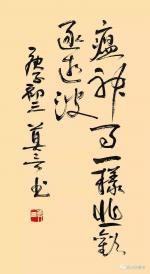 瘟神事一樣悲歡
逐逝波
庚子初三 莫言书